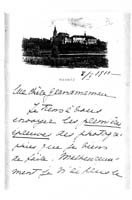 Ma chère grandmaman
Je tiens à vous
envoyer les première
épreuves des photogra-
phies que je viens
de faire. Malheureuse-
ment je n'ai plus le